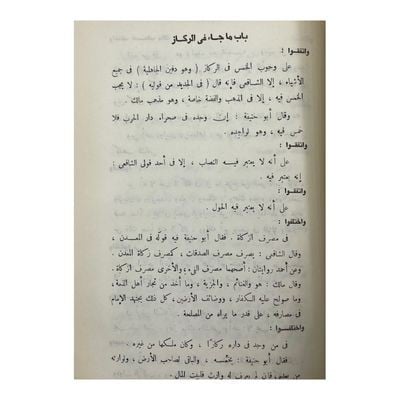 باب ما جاء فى الركاز
واتفقوا :
على وجوب الخمس فى الركاز ( وهو دفين الجاهلية ) فى جميع
الأشياء ، إلا الشافعى فإنه قال ( فى الجديد من قوليه ) : لا يجب
الخمس فيه ، إلا فى الذهب والفضة خاصة ، وهو مذهب مالك .
وقال أبو حنيفة : إن وجده فى صحراء دار الحرب فلا
خمس فيه ، وهو لواجده .
واتفقوا :
على أنه لا يعتبر فيه النصاب ، إلا فى أحد قولى الشافعى :
إنه يعتبر فيه .
واتفقوا :
على أنه لا يعتبر فيه الحول .
واختلفوا :
فى مصرف الزكاة . فقال أبو حنيفة فيه قوله فى المعدن ،
وقال الشافعى : يصرف مصرف الصدقات ، كمصرف زكاة المعدن .
وعن أحمد روايتان : أصحهما مصرف الفىء ، والأخرى مصرف الزكاة .
وقال مالك : هو والغنائم ، والجزية ، وما أخذ من تجار أهل الذمة ،
وما صولح عليه الكفار ، ووضائف الأرضين ، كل ذلك يجتهد الإمام
فى مصارفه ، على قدر ما يراه من المصلحة .
واختلفوا :
فى من وجد فى داره ركازًا ، وكان ملكها من غيره .
فقال أبو حنيفة : يخمّسه ، والباقى لصاحب الأرض ، ولوارثه
من بعده ، فإن لم يعرف له وارث فلبيت المال .